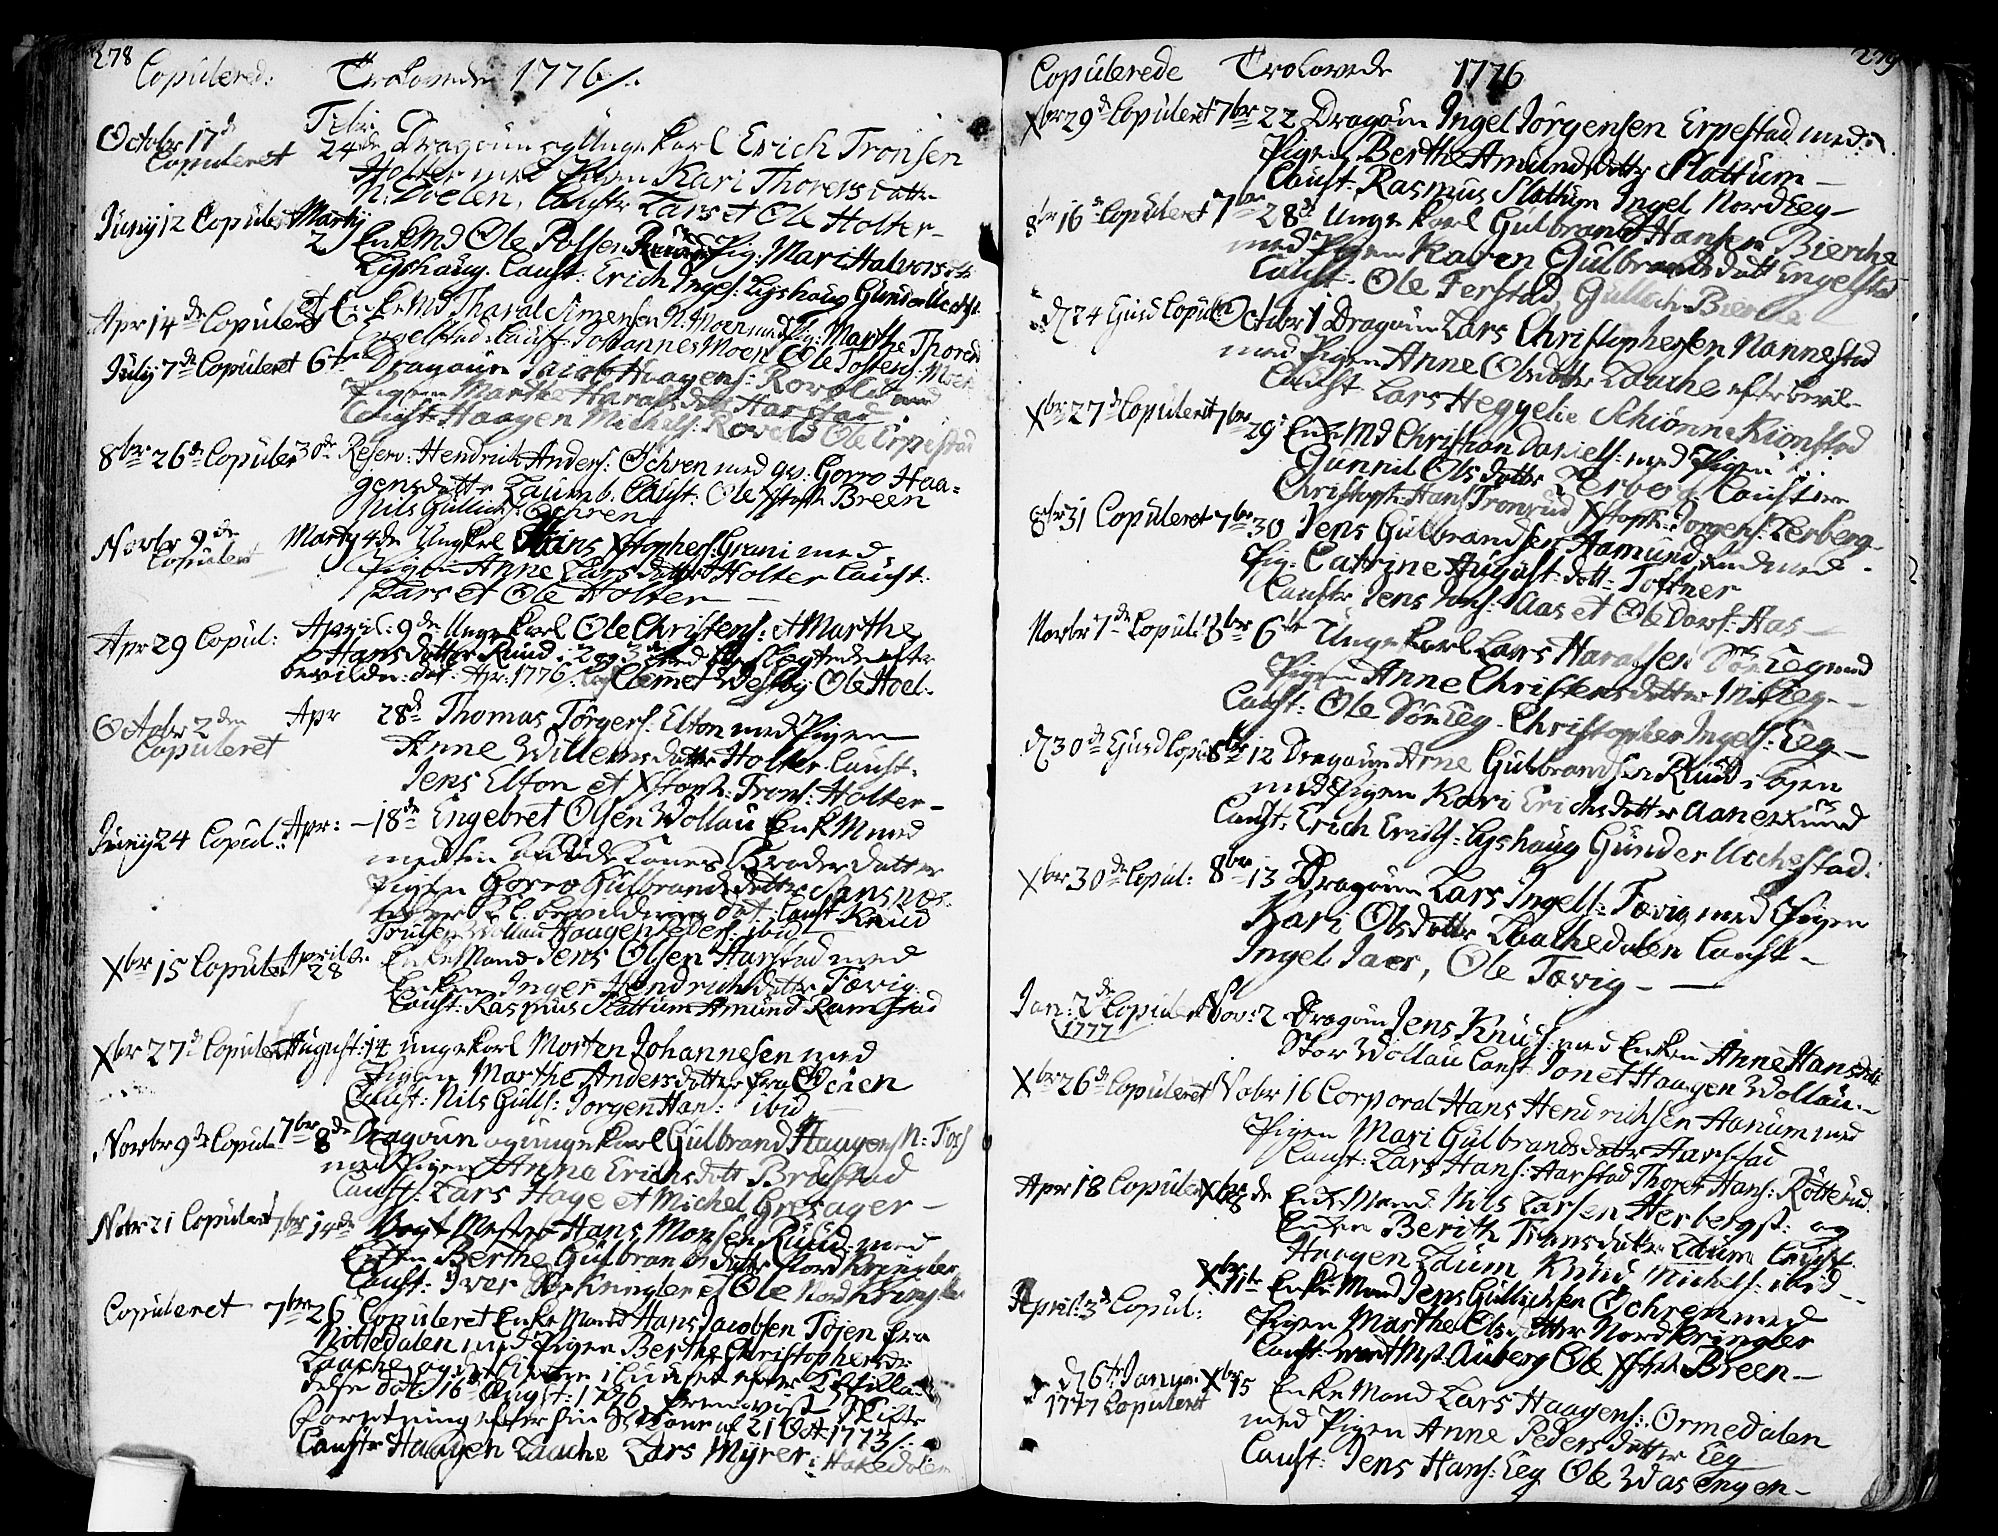 278
Copulered: Trolovede 1776/.
Febr:
Octobr 17de 24de Dragoun og Ungekarl Erich Tronsen
Copuleret Holter med Pigen Kari Thorersdatter
N: Doelen, Caustr Lars et Ole Holter-
Juny 12 Copuleret Marty
2 EnkeMd Ole Polsen Ruud Pig: Mari Halvorsdtr
Lyshaug. Caust: Erich Ingels: Lyshaug Gunder Ucchest:
Apr 14de Copuleret EnkeMd Tharal Simensen N: Moen med Pig: Marthe Thorersd
Engelstad. Caust: Johannes Moen Ole Tostens: Moen
July 7de Copuleret 6te Dragoun Jacob Haagens: Rovold med
Pigen Marthe Haralsdatter Harstad
Caust: Haagen Michels: Rovold Ole Erpestad
8br 26de Copuler 30de Reserv: Hendrich Anders: Ochren med qv: Gorro Haa=
gensdatter Laumb. Caust: Ole Xstoph Breen
Nils Gullichs: Ochren
Novbr 9de Marty 4de Ungkrl Hans Xstophers: Grani med
Copuleret Pigen Anne Larsdatter Holter Caust:
Lars et Ole Holter —
Apr 29 Copul: April: 9de Ungekarl Ole Christens: et Marthe
Hansdatter Ruud i 2 og 3 Led beslegtede efter
bevildn: dat: Apr: 1776. Clemet Westby Ole Hoel:
Octobr 2den Apr 28de Thomas Jörgers: Elton med Pigen
Copuleret Anne Willemsdatter Holter. Caust.
Jens Elton et Xstoph: Trons: Holter-
Juny 24 Copul: Apr: —18de Engebret Olsen Wollau EnkM med
med sin afdöde Kones Broder datter
Pigen Gorro Gulbrandsdatter Sansnes
efter Kl. bevildning dat: Caust: Knud
Joulsen Wollau Haagen Peders: ibid
Xbr 15 Copuler April 28 Enke Mand Jens Olsen Harstad med
Enken Inger Hendrichsdatter Tævig.
Caust: Rasmus Slattum Amund Ramstad
Xbr 27de Copuleret August: 14 ungekarl Morten Johannesen med
Pigen Marthe Andersdatter fra Ochren
Caust: Nils Gulls: Jorgen Hans: ibid
Novbr 9de Copule 7br 8de Dragoun og ungekarl Gulbrand Haagens N: Foss
med Pigen Anna Erichsdatt Braastad
Caust: Lars Hage et Michel Gresager —
Nobr 21 Copuleret 7br 14de Vagt Mestr Hans Monsen Ruud med
Enken Berthe Gulbrandsdatter Nord Kringler
Caust: Iver Sör Kringler et Ole Nord Kringler
Copuleret 7br 26 Copuleret Enke Mand Hans Jacobsen Töjen fra
Nittedalen med Pigen Berthe Christophersdr
Laache
dat: 16 Augst: 1776 fremvist Skifte
Forretning efter sin Sl: Kone af 21 Oct: 1773/.
Caustr Haagen Laache Lars Myrer: Hakedalen
279
Copulerede Trolovede 1776
Xbr 29de Copuleret 7br 22 Dragoun Ingel Jörgensen Erpestad med
Pigen Berthe Amundsdatter Slattum —
Caust: Rasmus Slattum Ingel Nord Eeg —
8br 16de Copuleret 7br 28de Ungekarl Gulbrand Hansen Bierche
med Pigen Karen Gulbrandsdatt Engelstad
Caust: Ole Ferstad, Gullich Bierche
d 24 Giusd Copul: Octobr 1 Dragoun Lars Christophersen Nannestad
med Pigen Anne Olsdatter Laache efter bevil-
Caust: Lars Heggelie Schiönne Kionstad
Xbr 27de Copuleret 7br 29 EnkeMd Christian Daniels: med Pigen
Gunnil Olsdatter Lerberg Caustere
Christoph: Hans Tronrud Xstoph: Jorgens: Lerberg
8br 31 Copuleret 7br 30 Jens Gulbrandsen Aamund, med
Pig: Catrine August: datt: Toftner
Caustr Jens Jons: Aas et Ole Lars: Aas —
Novbr 7de Copul: 8br 6te Ungekarl Lars Haralsen Sör Eeg med
Pigen Anne Christensdatter Mit Eeg —
Caust: Ole Sör Eeg. Christopher Ingels: Eeg —
d 30de Giusd Copul 8br 12 Dragoun Arne Gulbrandsen Ruud i byen
med Pigen Kari Erichsdatter Aanerud
Caust: Erich Erichs: Lyshaug Gunder Ucchestad.
Xbr 30de Copul: 8br 13 Dragoun Lars Ingels: Tævig med Pigen
Kari Olsdatter Laachedalen Caust —
Ingel Jaer, Ole Tævig —
Jan: 2de Copuleret Nov: 2 Dragoun Jens Knuds: med Enken Anne Hansdatt
1777 Stor Wollau Caust Jon et Haagen Wollau —
Xbr 26de Copuleret Nobr 16 Corporal Hans Hendrichsen Aanum med
Pigen Mari Gulbrandsdatter Harstad
Caust: Lars Hans: Harstad Thorer Hans: Rötterud
Apr 18 Copuler Xbr 8de Enk: Mand Nils Larsen Herbergst: og
Enken Berith Tronsdatter Laum Caust
Haagen Laum Knud Michels: ibid —
April: 3de Copul: Xbr 11te Enke Mand Jens Gullichsen Ochren med
Pigen Marthe Olsdatter Nord Kringler
Caust: Auberg Ole Xstoph Breen —
d 6te January Xbr 15 Enke Mand Lars Haagens: Ormedalen
1777 Copuleret med Pigen Anne Pedersdatter Eeg
Caust: Jens Hans: Eeg Ole Wasengen —